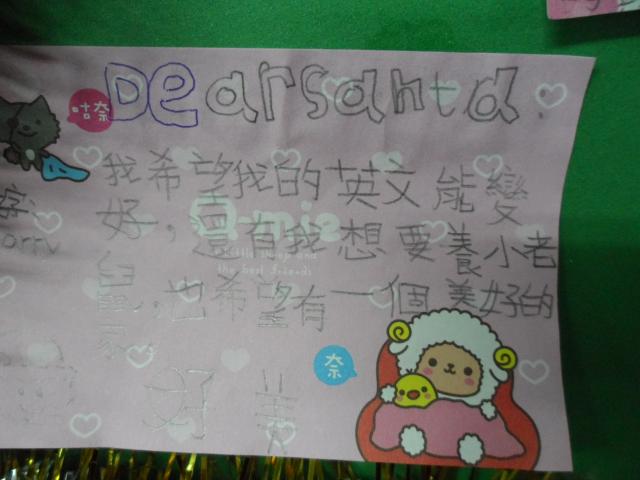 咕奈
Dear santa:
我希望我的英文能變
好,還有我想要養小老
鼠,也希望有一個美好的
家
Q-miz
the best friends
奈
好 美